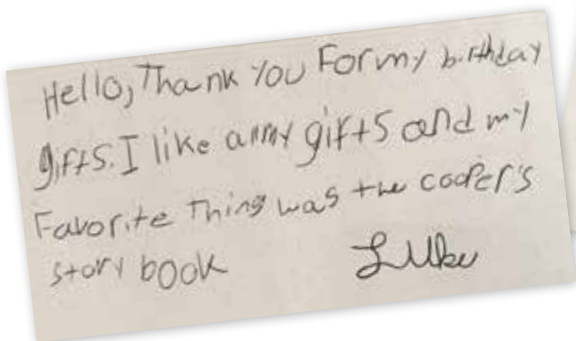 Hello, Thank You For my birthday
gifts. I like gifts and my
Favorite Thing was the cooper's
story book
Luke